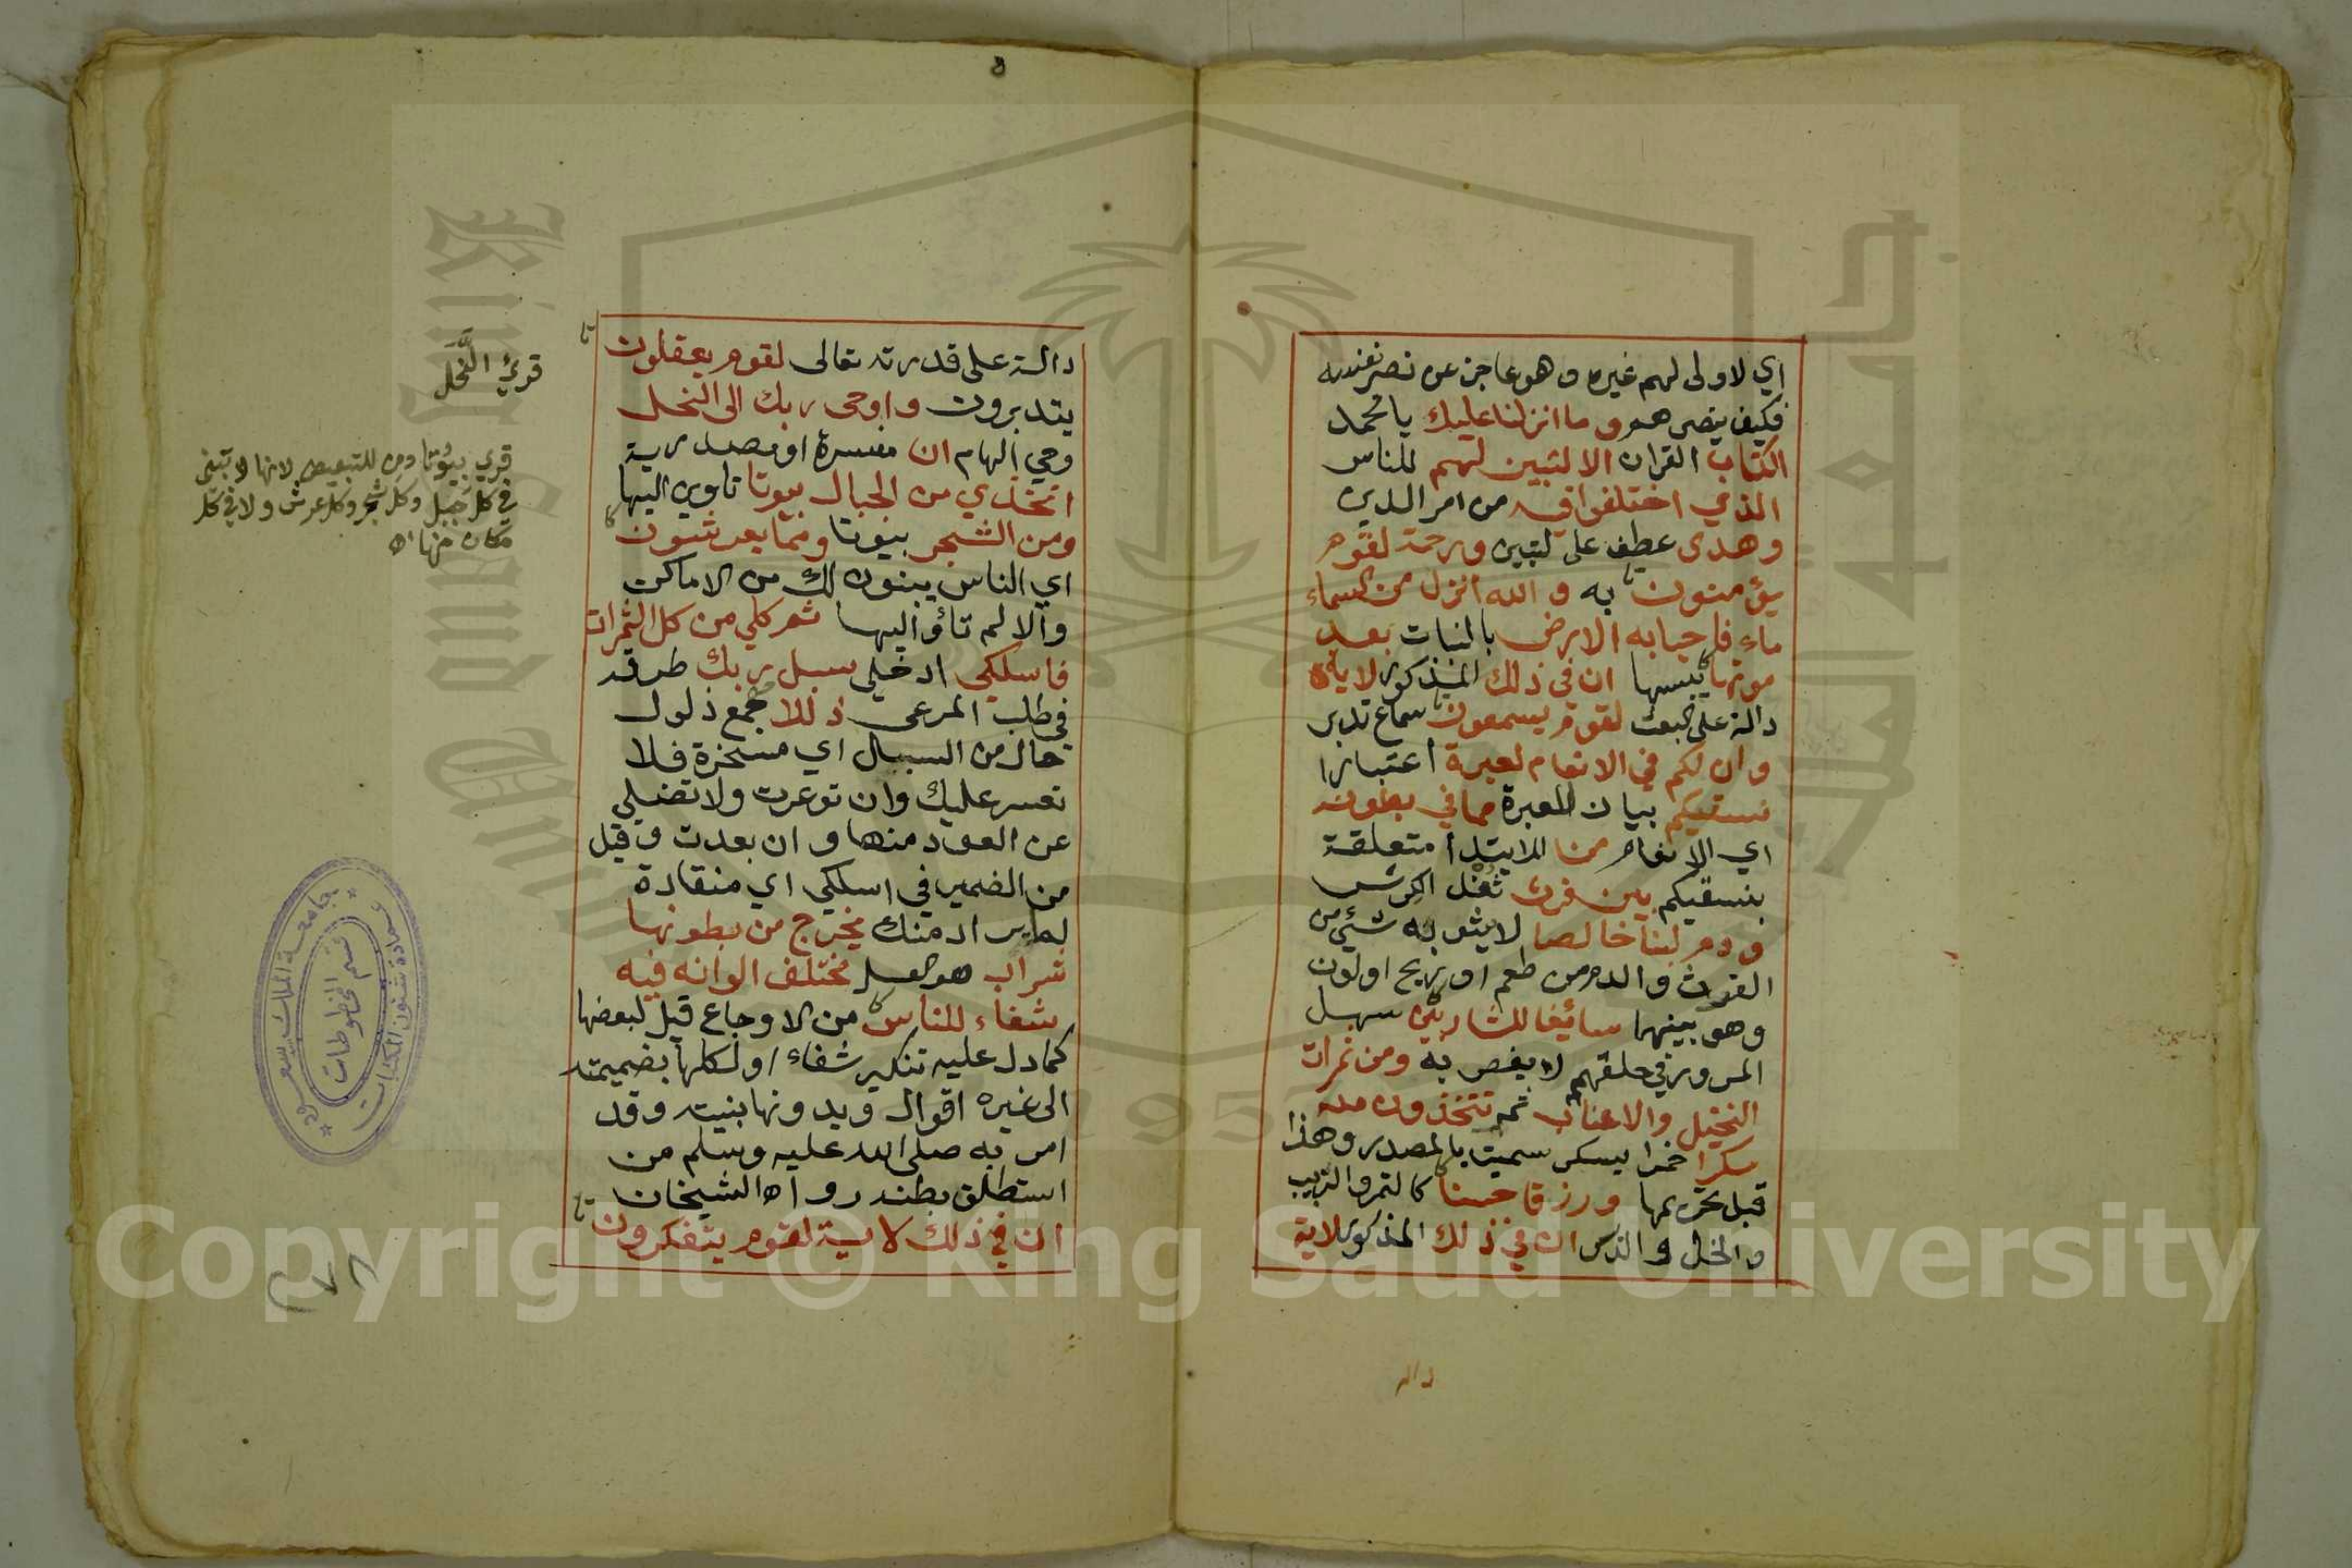 اي لاولى لهم غيره وهو عاجز عن نصر نفسه
فكيف ينصرهم وما انزلنا عليك يا محمد
الكتاب القران الا لتبين لهم للناس
الذي اختلفوا فيه من امر الدين
وهدى عطف على لتبين ورحمة لقوم
يؤمنون به والله انزل من السماء
ماء فاحيا به الارض بالنبات بعد
موتها يبسها ان في ذلك المذكور لاية
دالة على البعث لقوم يسمعون سماع تدبر
وان لكم في الانعام لعبرة اعتبارا
نسقيكم بيان للعبرة مما في بطونه
اي الانعام من للابتداء متعلقة
بنسقيكم بين فرث ثفل الكرش
ودم لبنا خالصا لا يشوبه شئ من
الفرث والدم من طعم او ريح او لون
وهو بينهما سائغا للشاربين سهل
المرور في حلقهم لا يغص به ومن ثمرات
النخيل والاعناب ثمر تتخذون منه
سكرا خمرا يسكر سميت بالمصدر وهذا
قبل تحريمها ورزقا حسنا كالتمر والزبيب
والخل والدبس ان في ذلك المذكور لاية
دالة
دالة على قدرته تعالى لقوم يعقلون
يتدبرون واوحى ربك الى النحل
وحي الهام ان مفسرة او مصدرية
اتخذي من الجبال بيوتا تاوين اليها
ومن الشجر بيوتا ومما يعرشون
اي الناس يبنون لك من الاماكن
والا لم تأو اليها ثم كلي من كل الثمرات
فاسلكي ادخلي سبل ربك طرقه
في طلب المرعى ذللا جمع ذلول
حال من السبل اي مسخرة فلا
تعسر عليك وان توعرت ولا تضلي
عن العود منها وان بعدت وقيل
من الضمير في اسلكي اي منقادة
لما يراد منك يخرج من بطونها
شراب هو العسل مختلف الوانه فيه
شفاء للناس من الاوجاع قيل لبعضها
كما دل عليه تنكير شفاء او لكلها بضميمته
الى غيره اقول وبدونها بنيته وقد
امر به صلى الله عليه وسلم من
استطلق بطنه رواه الشيخان
ان في ذلك لاية لقوم يتفكرون
قرئ النَّحَل
قرئ بيُوتا ومن للتبعيض لانها لا تبنى
في كل جبل وكل شجر وكل عرش ولا في كل
مكان منها اه
جامعة الملك سعود
عمادة شئون المكتبات
قسم المخطوطات
King Saud University
1957
Copyright © King Saud University